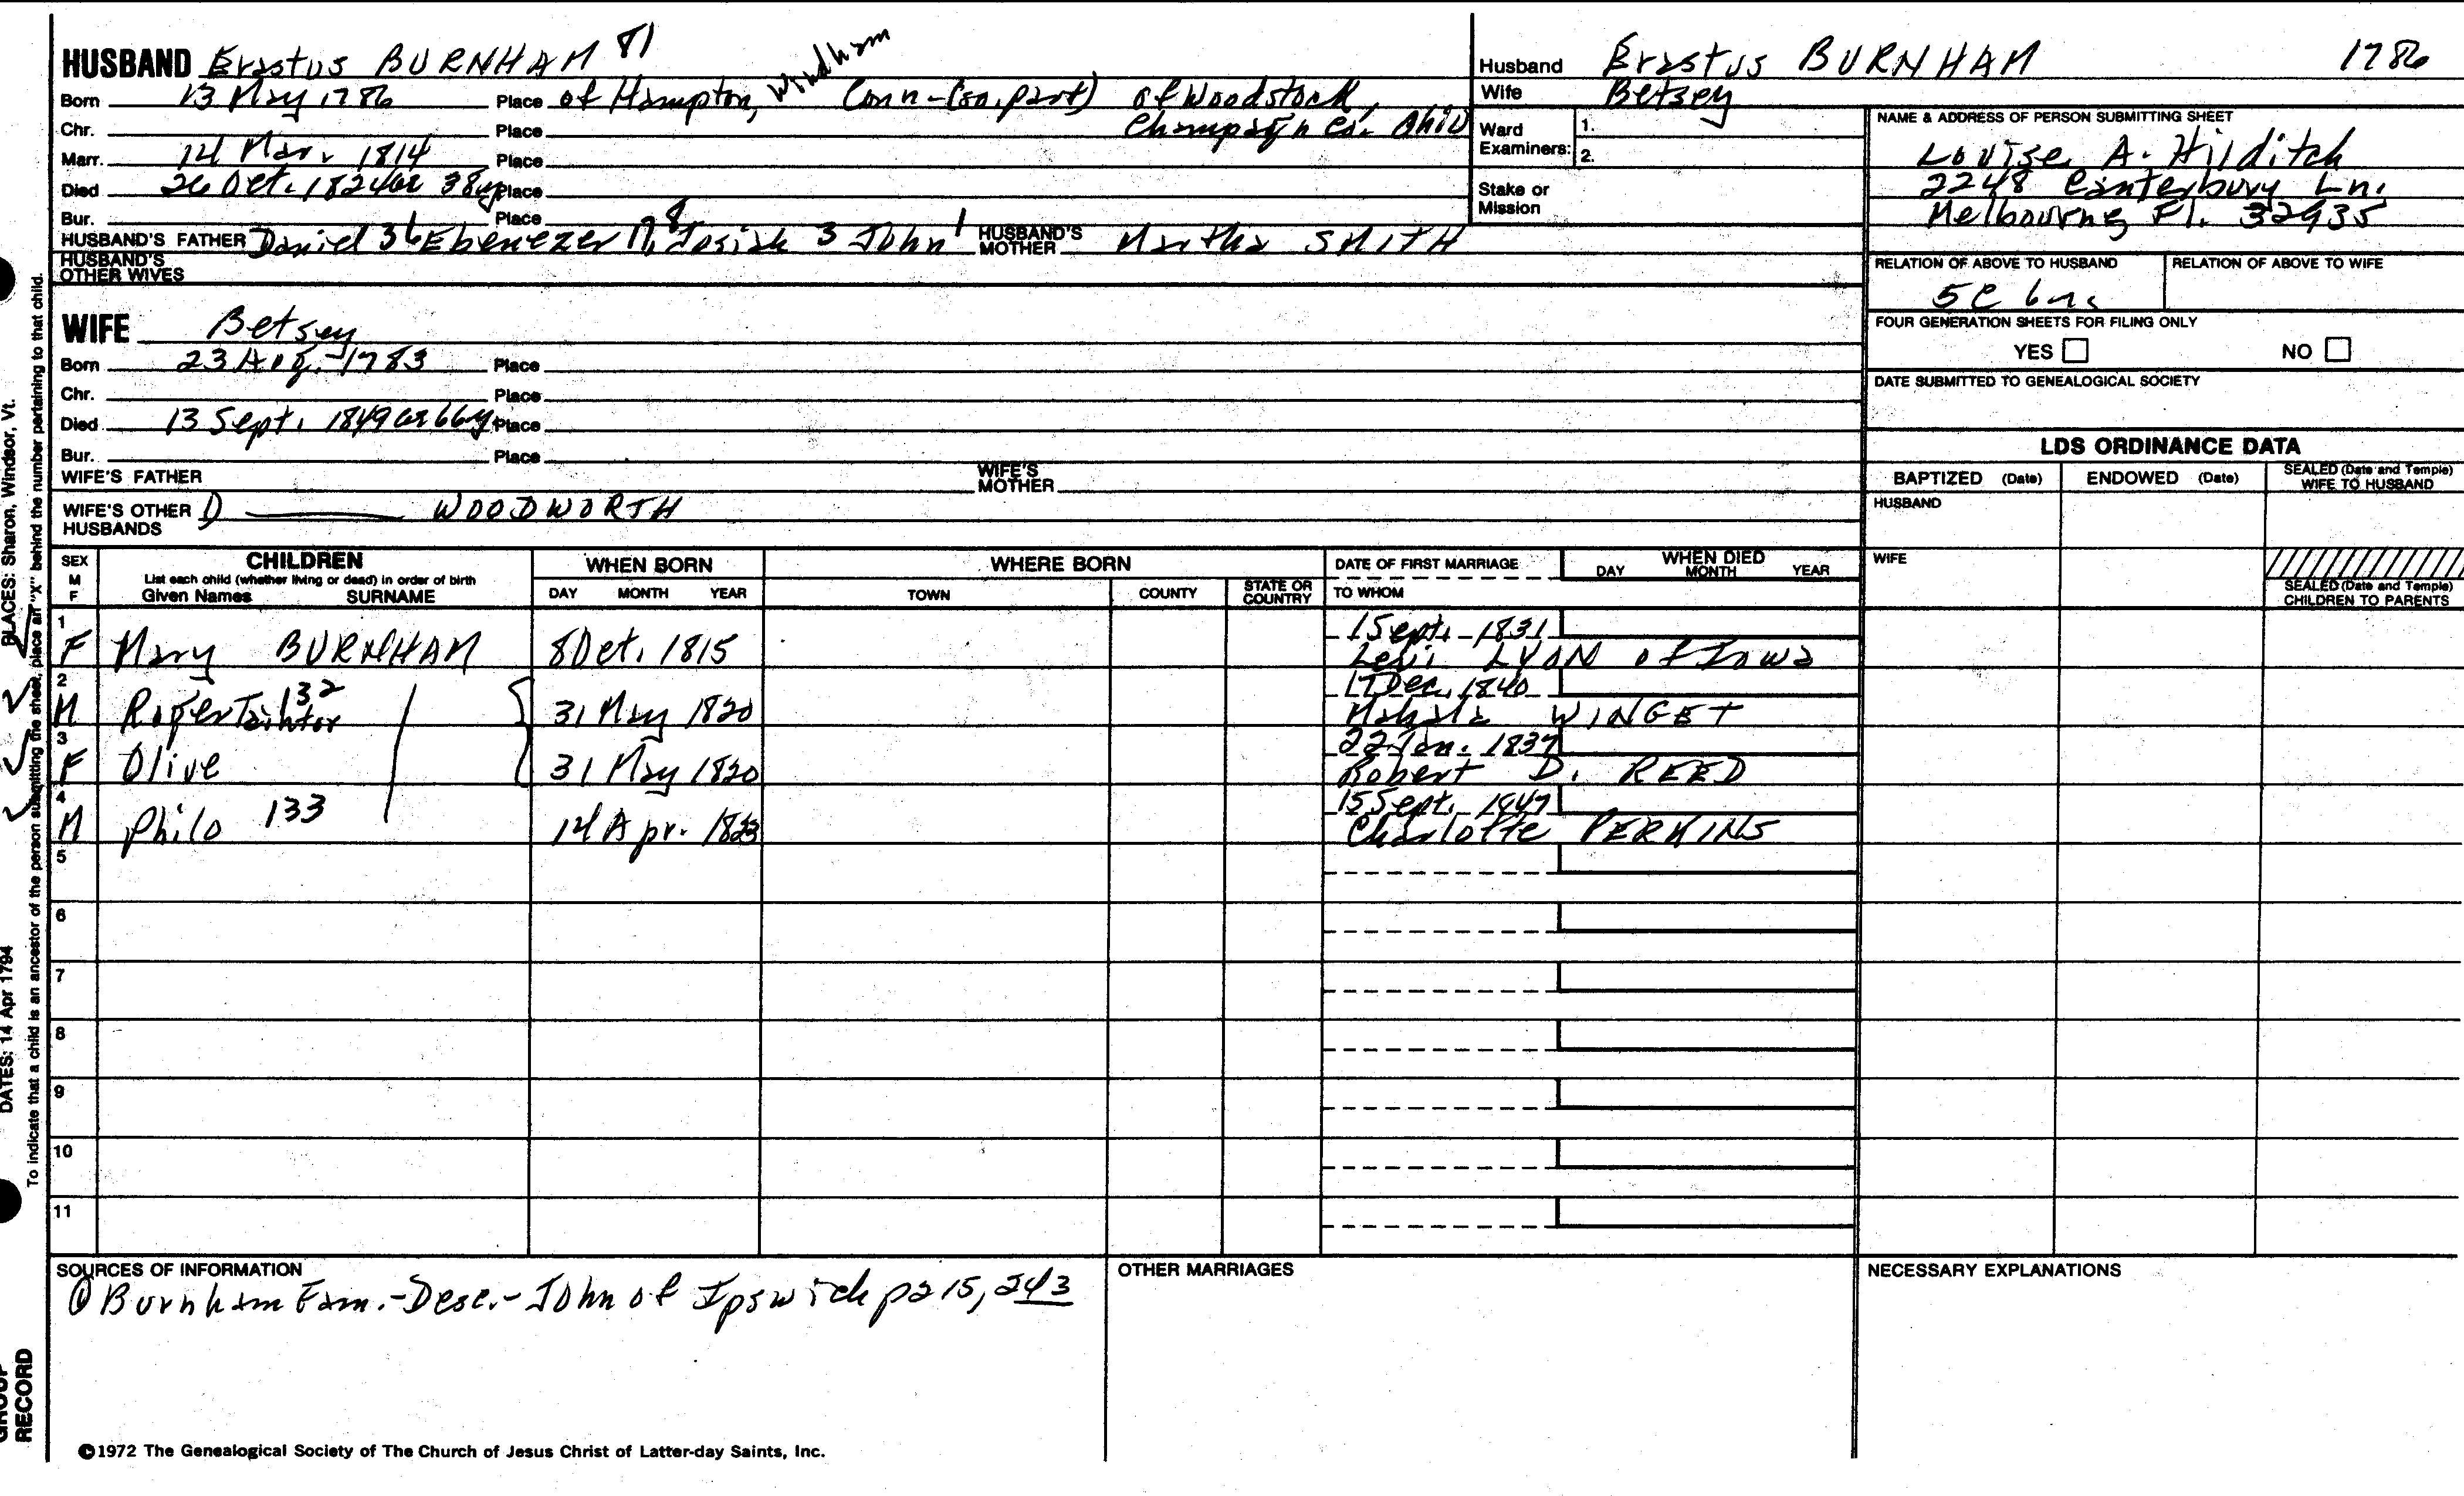 HUSBAND Erastus BURNHAM 81
Born 13 May 1786 Place of Hampton, Windham Conn-(so. part) of Woodstock, Champaign Co. Ohio
Chr. Place
Marr. 14 Mar. 1814 Place
Died 26 Oct. 1824 ae 38y Place
Bur. Place
HUSBAND'S FATHER Daniel 36 Ebenezer 17, 8 Josiah 3 John 1 HUSBAND'S MOTHER Martha SMITH
HUSBAND'S OTHER WIVES
WIFE Betsey
Born 23 Aug. 1783 Place
Chr. Place
Died 13 Sept. 1849 ae 66y Place
Bur. Place
WIFE'S FATHER WIFE'S MOTHER
WIFE'S OTHER HUSBANDS D WOODWORTH
Husband Erastus BURNHAM 1786
Wife Betsey
Ward Examiners: 1.
2.
Stake or Mission
NAME & ADDRESS OF PERSON SUBMITTING SHEET
Louise A. Hilditch
2248 Canterbury Ln.
Melbourne Fl. 32935
RELATION OF ABOVE TO HUSBAND RELATION OF ABOVE TO WIFE
5C
FOUR GENERATION SHEETS FOR FILING ONLY
YES NO
DATE SUBMITTED TO GENEALOGICAL SOCIETY
LDS ORDINANCE DATA
BAPTIZED (Date) ENDOWED (Date) SEALED (Date and Temple) WIFE TO HUSBAND
HUSBAND
WIFE
SEALED (Date and Temple) CHILDREN TO PARENTS
SEX M F
CHILDREN
List each child (whether living or dead) in order of birth
Given Names SURNAME
WHEN BORN
DAY MONTH YEAR
WHERE BORN
TOWN COUNTY STATE OR COUNTRY
DATE OF FIRST MARRIAGE
TO WHOM
WHEN DIED
DAY MONTH YEAR
1 F Mary BURNHAM 8 Oct. 1815 1 Sept. 1831
Levi LYON of Iowa
2 M Roger Taintor 132 31 May 1820 17 Dec. 1840
Mahala WINGET
3 F Olive 31 May 1820 22 Jan. 1837
Robert D. REED
4 M Philo 133 14 Apr. 1823 15 Sept. 1847
Charlotte PERKINS
5
6
7
8
9
10
11
SOURCES OF INFORMATION
① Burnham Fam.-Desc.-John of Ipswich pa 15, 243
OTHER MARRIAGES
NECESSARY EXPLANATIONS
©1972 The Genealogical Society of The Church of Jesus Christ of Latter-day Saints, Inc.
PLACES: Sharon, Windsor, Vt.
DATES: 14 Apr 1794
To indicate that a child is an ancestor of the person submitting the sheet, place an "X" behind the number pertaining to that child.
GROUP
RECORD